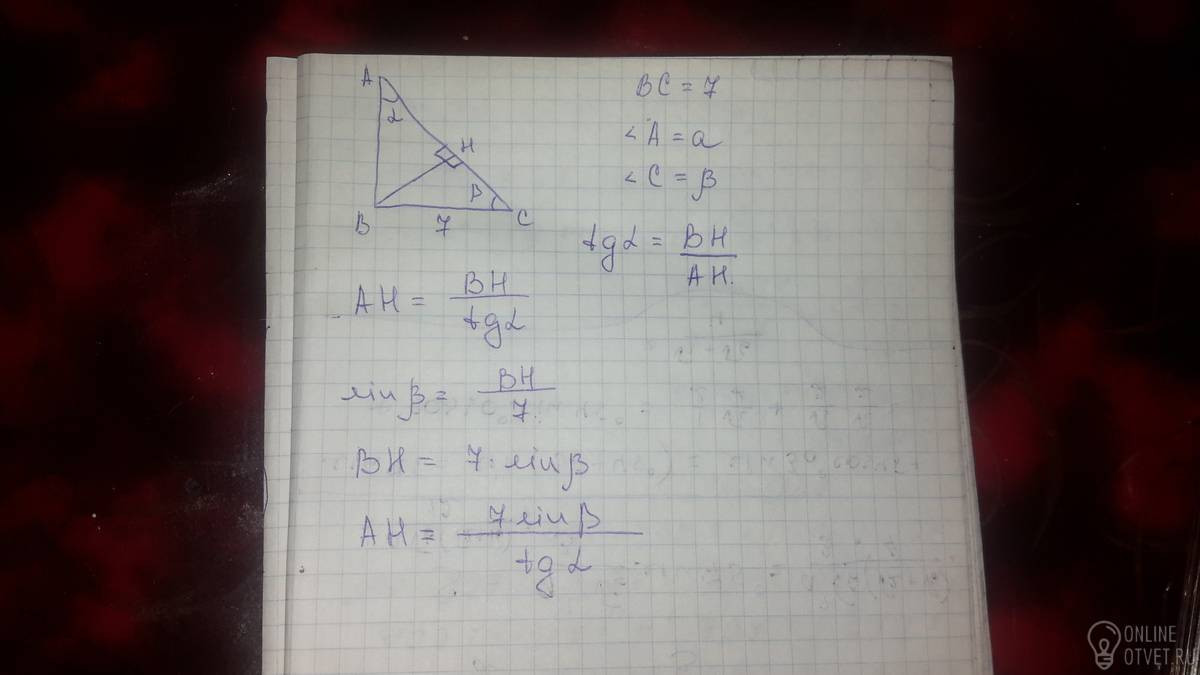 A
α
H
β
B
7
C
BC = 7
∠A = a
∠C = β
tg α = BH / AH.
AH = BH / tg α
sin β = BH / 7
BH = 7 · sin β
AH = 7 sin β / tg α
ONLINE
OTVET.RU